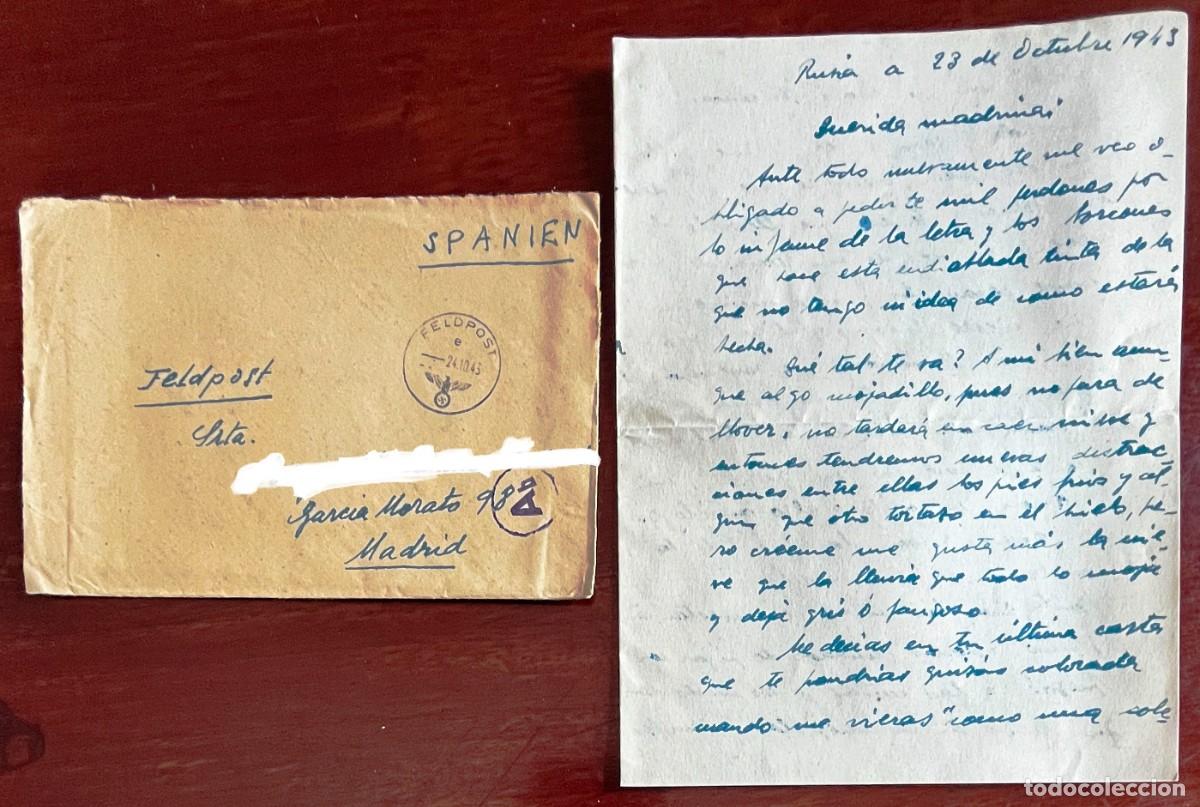 SPANIEN
FELDPOST
e
24.10.43
Feldpost
Srta.
García Morato 98
Madrid
Rusia a 23 de Octubre 1943
Querida madrina:
Ante todo nuevamente me veo o-
bligado a pedirte mil perdones por
lo infame de la letra y los borrones
que hace esta endiablada tinta de la
que no tengo ni idea de como estará
hecha.
Qué tal te va? A mi bien aun-
que algo mojadillo, pues no para de
llover, no tardará en caer nieve y
entonces tendremos nuevas distrac-
ciones entre ellas los pies frios y al-
gun que otro tortazo en el hielo, pe-
ro créeme me gusta más la nie-
ve que la lluvia que todo lo moja
y deja gris ó fangoso.
Me decias en tu última carta
que te pondrías quizás colorada
cuando me vieras "como una cole-
todocoleccion